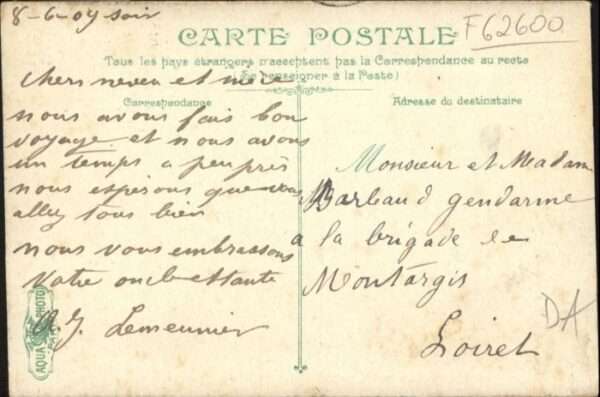 8-6-09 soir
F62600
CARTE POSTALE
Tous les pays étrangers n'acceptent pas la Correspondance au recto
(Se renseigner à la Poste)
Correspondance
chers neveu et nièce
nous avons fais bon
voyage et nous avons
un temps a peu près
nous espérons que vous
allez tous bien
nous vous embrassons
votre oncle et tante
A.J. Lemeunier
AQUA PHOTO
Adresse du destinataire
Monsieur et Madam
Barbaud gendarme
a la brigade de
Montargis
Loiret
DA